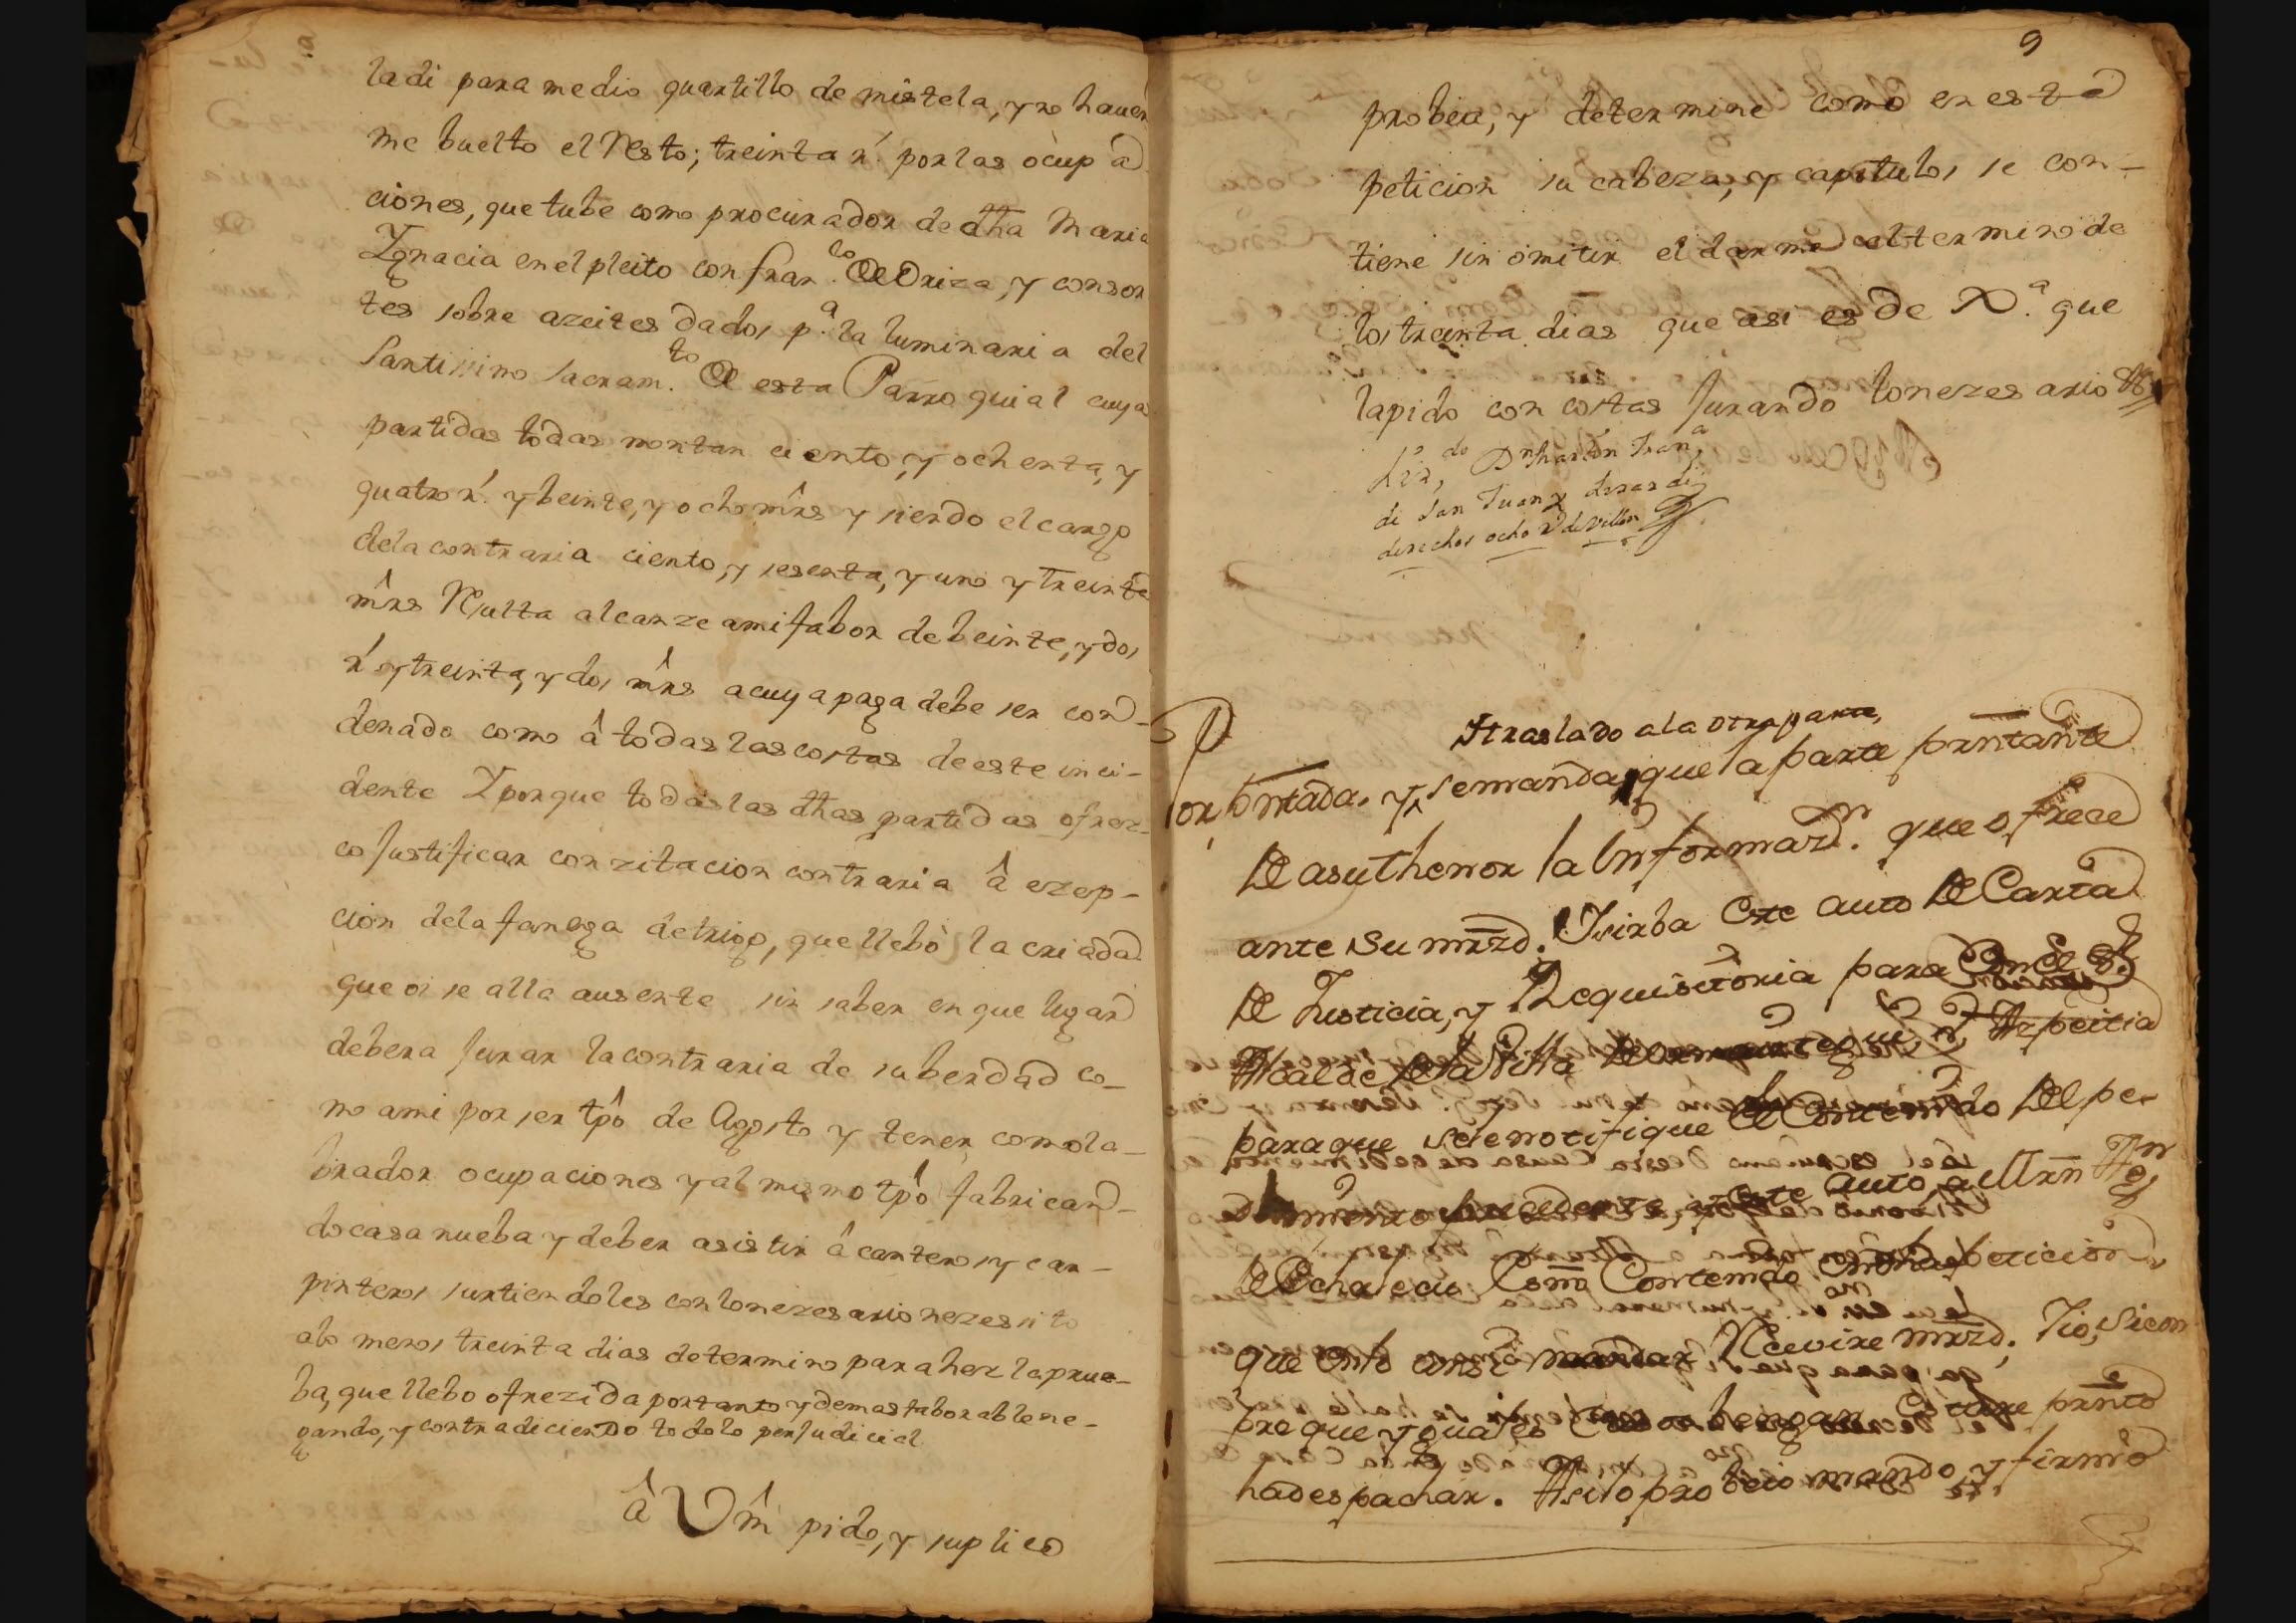 ladi para medio quartillo de mistela, y no haver
me buelto el Resto; treinta r.^s por las ocupa
ciones, que tube como procurador de dha Maria
Ygnacia en el pleito con fran.^co de Oriza, y consor
tes sobre azeites dados p.^a la luminaria del
santissimo sacram.^to de esta Parroquial cuyas
partidas todas montan ciento, y ochenta, y
quatro r.^s y beinte, y ocho mrs y siendo el cargo
dela contraria ciento, y sesenta, y uno y treinta
mrs Resulta alcanze ami fabor de beinte, y dos
r.^s y treinta, y dos mrs acuya paga debe ser con-
denado como â todas las costas de este inci-
dente Y porque todas las dhas partidas ofrez-
co Justificar con zitacion contraria â ezep-
cion dela fanega de trigo, que llebò la criada
que oi se alla ausente sin saber en que lugar
debera Jurar la contraria de su berdad co-
mo ami por ser tpô de Agosto y tener como la-
brador ocupaciones y al mismo tpô fabrican-
do casa nueba y deber asistir â canteros y car-
pinteros surtiendoles con lo nezesario nezesito
alo menos treinta dias de termino para hazer la prue-
ba, que llebo ofrezida por tanto y demas faborable ne-
gando, y contradiciendo todo lo perJudicial
â Vm̂ pido, y suplico
9
probea, y determine como en esta
peticion su cabeza, y capitulos se con-
tiene sin omitir el darme el termino de
los treinta dias que asi es de X.^a que
la pido con costas Jurando lo nezesario &
Liz.^do D^n Martin Fran.^co
de San Juan y
derechos ocho r.^s de Vellon
Por presentada, y se manda, que la parte prntante
Itraslado a la otra parte,
De asu thenor la Informaz.^n que ofrece
ante su mrzd. Y sirba Este auto De Carta
De Justicia, y Requisitoria para Con el S.^r
Alcalde De la Villa De Azpeitia
para que se le notifique el Contenido Del pe-
dimento precedente, y este auto, a Mrn
De Echaseciu Como Contenido en dha peticion
que en lo ansi mandar Recevire mrzd; Yo, siem
pre que yguales Casos bengan Estare prnto
ha despachar. Asi lo probeio mando, y firmò